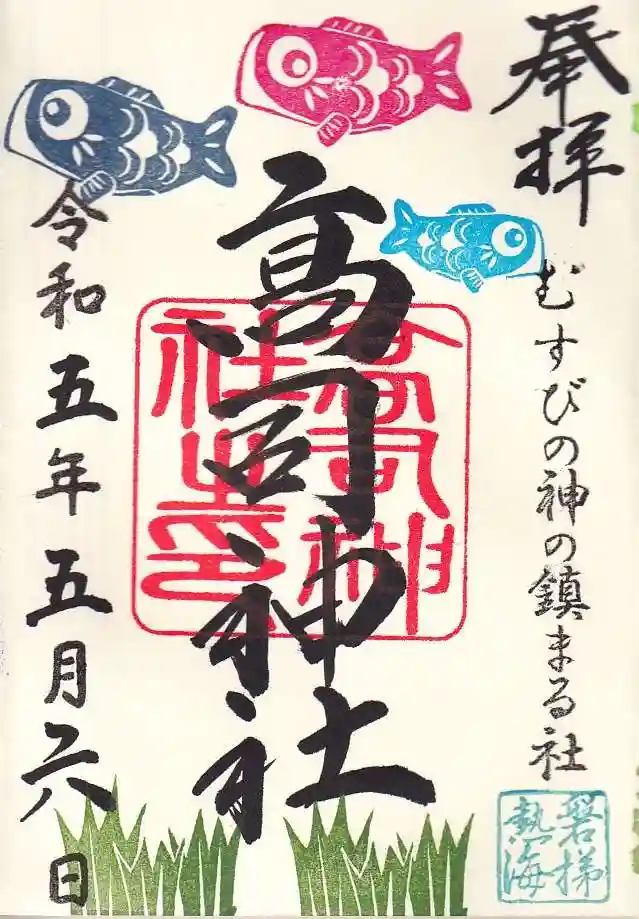 奉拝
むすびの神の鎮まる社
高司神社
高司神社之印
令和五年五月六日
磐梯
熱海